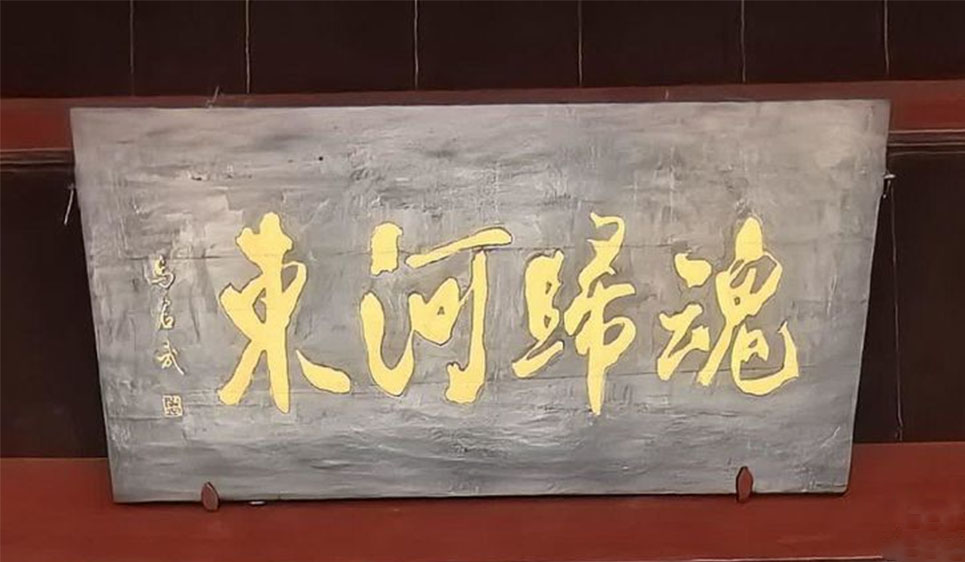 魂歸河東
馬君武